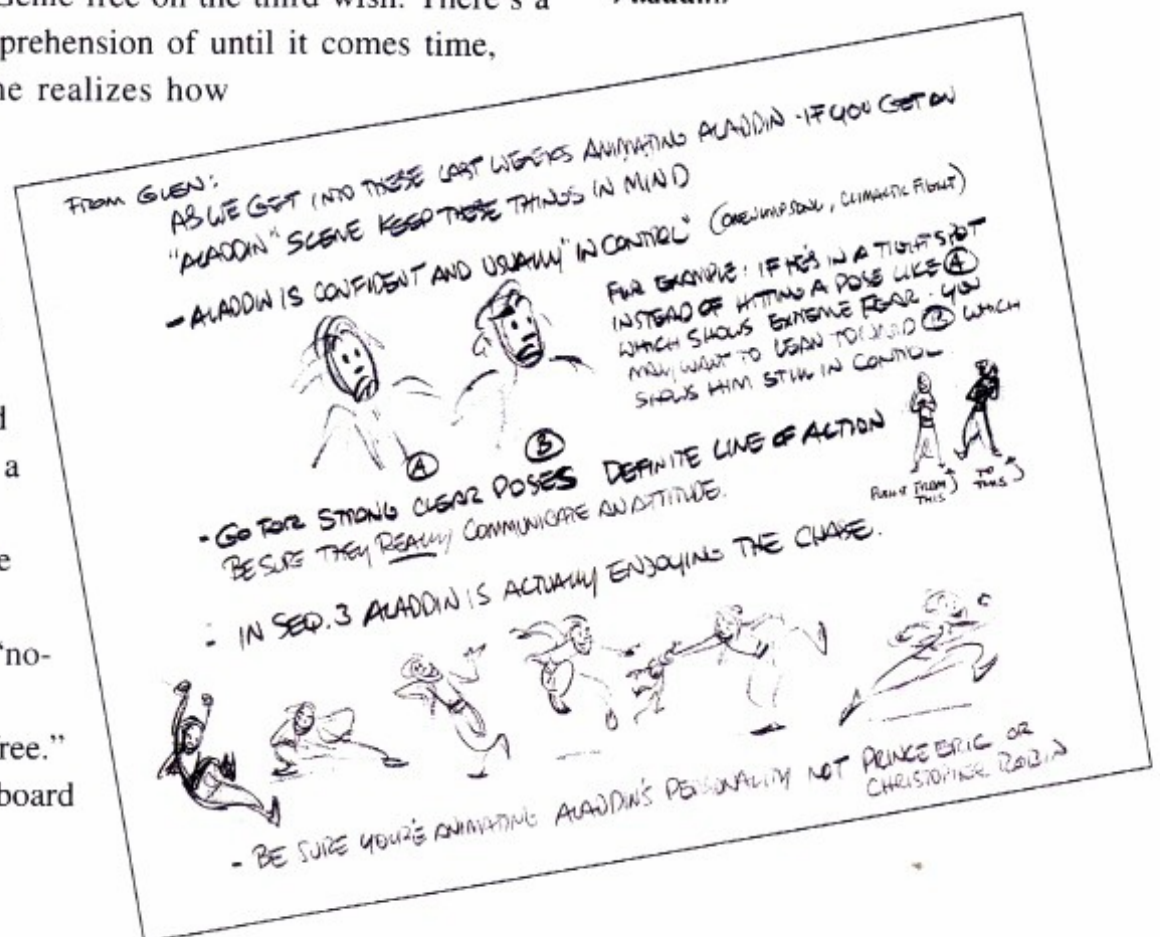 Genie free on the third wish. There's a
prehension of until it comes time,
ne realizes how
d
a
e
"no-
ree."
board
FROM GLEN:
AS WE GET INTO THESE LAST WEEKS ANIMATING ALADDIN - IF YOU GET AN
"ALADDIN" SCENE KEEP THESE THINGS IN MIND
- ALADDIN IS CONFIDENT AND USUALLY "IN CONTROL" (ONE JUMP SONG, CLIMACTIC FIGHT)
FOR EXAMPLE: IF HE'S IN A TIGHT SPOT
INSTEAD OF HITTING A POSE LIKE A
WHICH SHOWS EXTREME FEAR - YOU
MAY WANT TO LEAN TOWARD B WHICH
SHOWS HIM STILL IN CONTROL.
A
B
- GO FOR STRONG CLEAR POSES DEFINITE LINE OF ACTION
BE SURE THEY REALLY COMMUNICATE AN ATTITUDE.
FROM
THIS
TO
THIS
- IN SEQ. 3 ALADDIN IS ACTUALLY ENJOYING THE CHASE.
- BE SURE YOU'RE ANIMATING ALADDIN'S PERSONALITY NOT PRINCE ERIC OR
CHRISTOPHER ROBIN